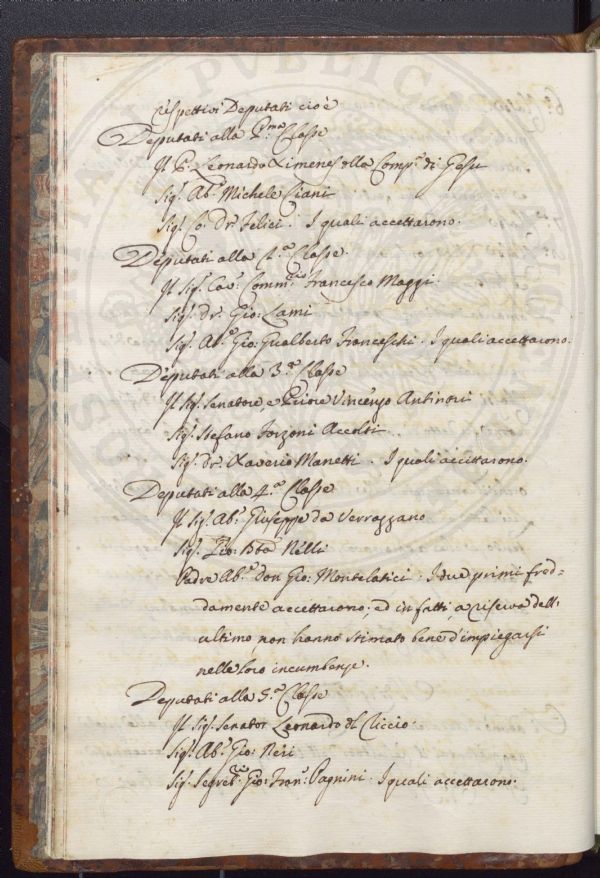 respettivi Deputati cioè
Deputati alla P.ma Classe
Il P. Leonardo Ximenes della Comp.a di Gesu
Sig.r Ab.e Michele Ciani
Sig.r Co: Dr. Felici. I quali accettarono.
Deputati alla 2.a Classe.
Il Sig.r Cav. Comm.rio Francesco Maggi.
Sig.r dr. Gio: Lami
Sig.r Ab.e Gio: Gualberto Franceschi. I quali accettarono.
Deputati alla 3.a Classe
Il Sig.r Senatore, e Priore Vincenzo Antinori
Sig.r Stefano Forzoni Accolti
Sig.r dr. Xaverio Manetti. I quali accettarono.
Deputati alla 4.a Classe
Il Sig.r Ab.e Giuseppe da Verrazzano
Sig.r Gio: Bta Nelli
Padre Ab.e don Gio: Montelatici. I due primi fred=
damente accettarono; ed in fatti, a riserva dell'
ultimo, non hanno stimato bene d'impiegarsi
nelle loro incumbenze.
Deputati alla 5.a Classe
Il Sig.r Senator Leonardo del Riccio.
Sig.r Ab.e Gio: Neri
Sig.r Segret.rio Gio: Fran.o Pagnini. I quali accettarono.